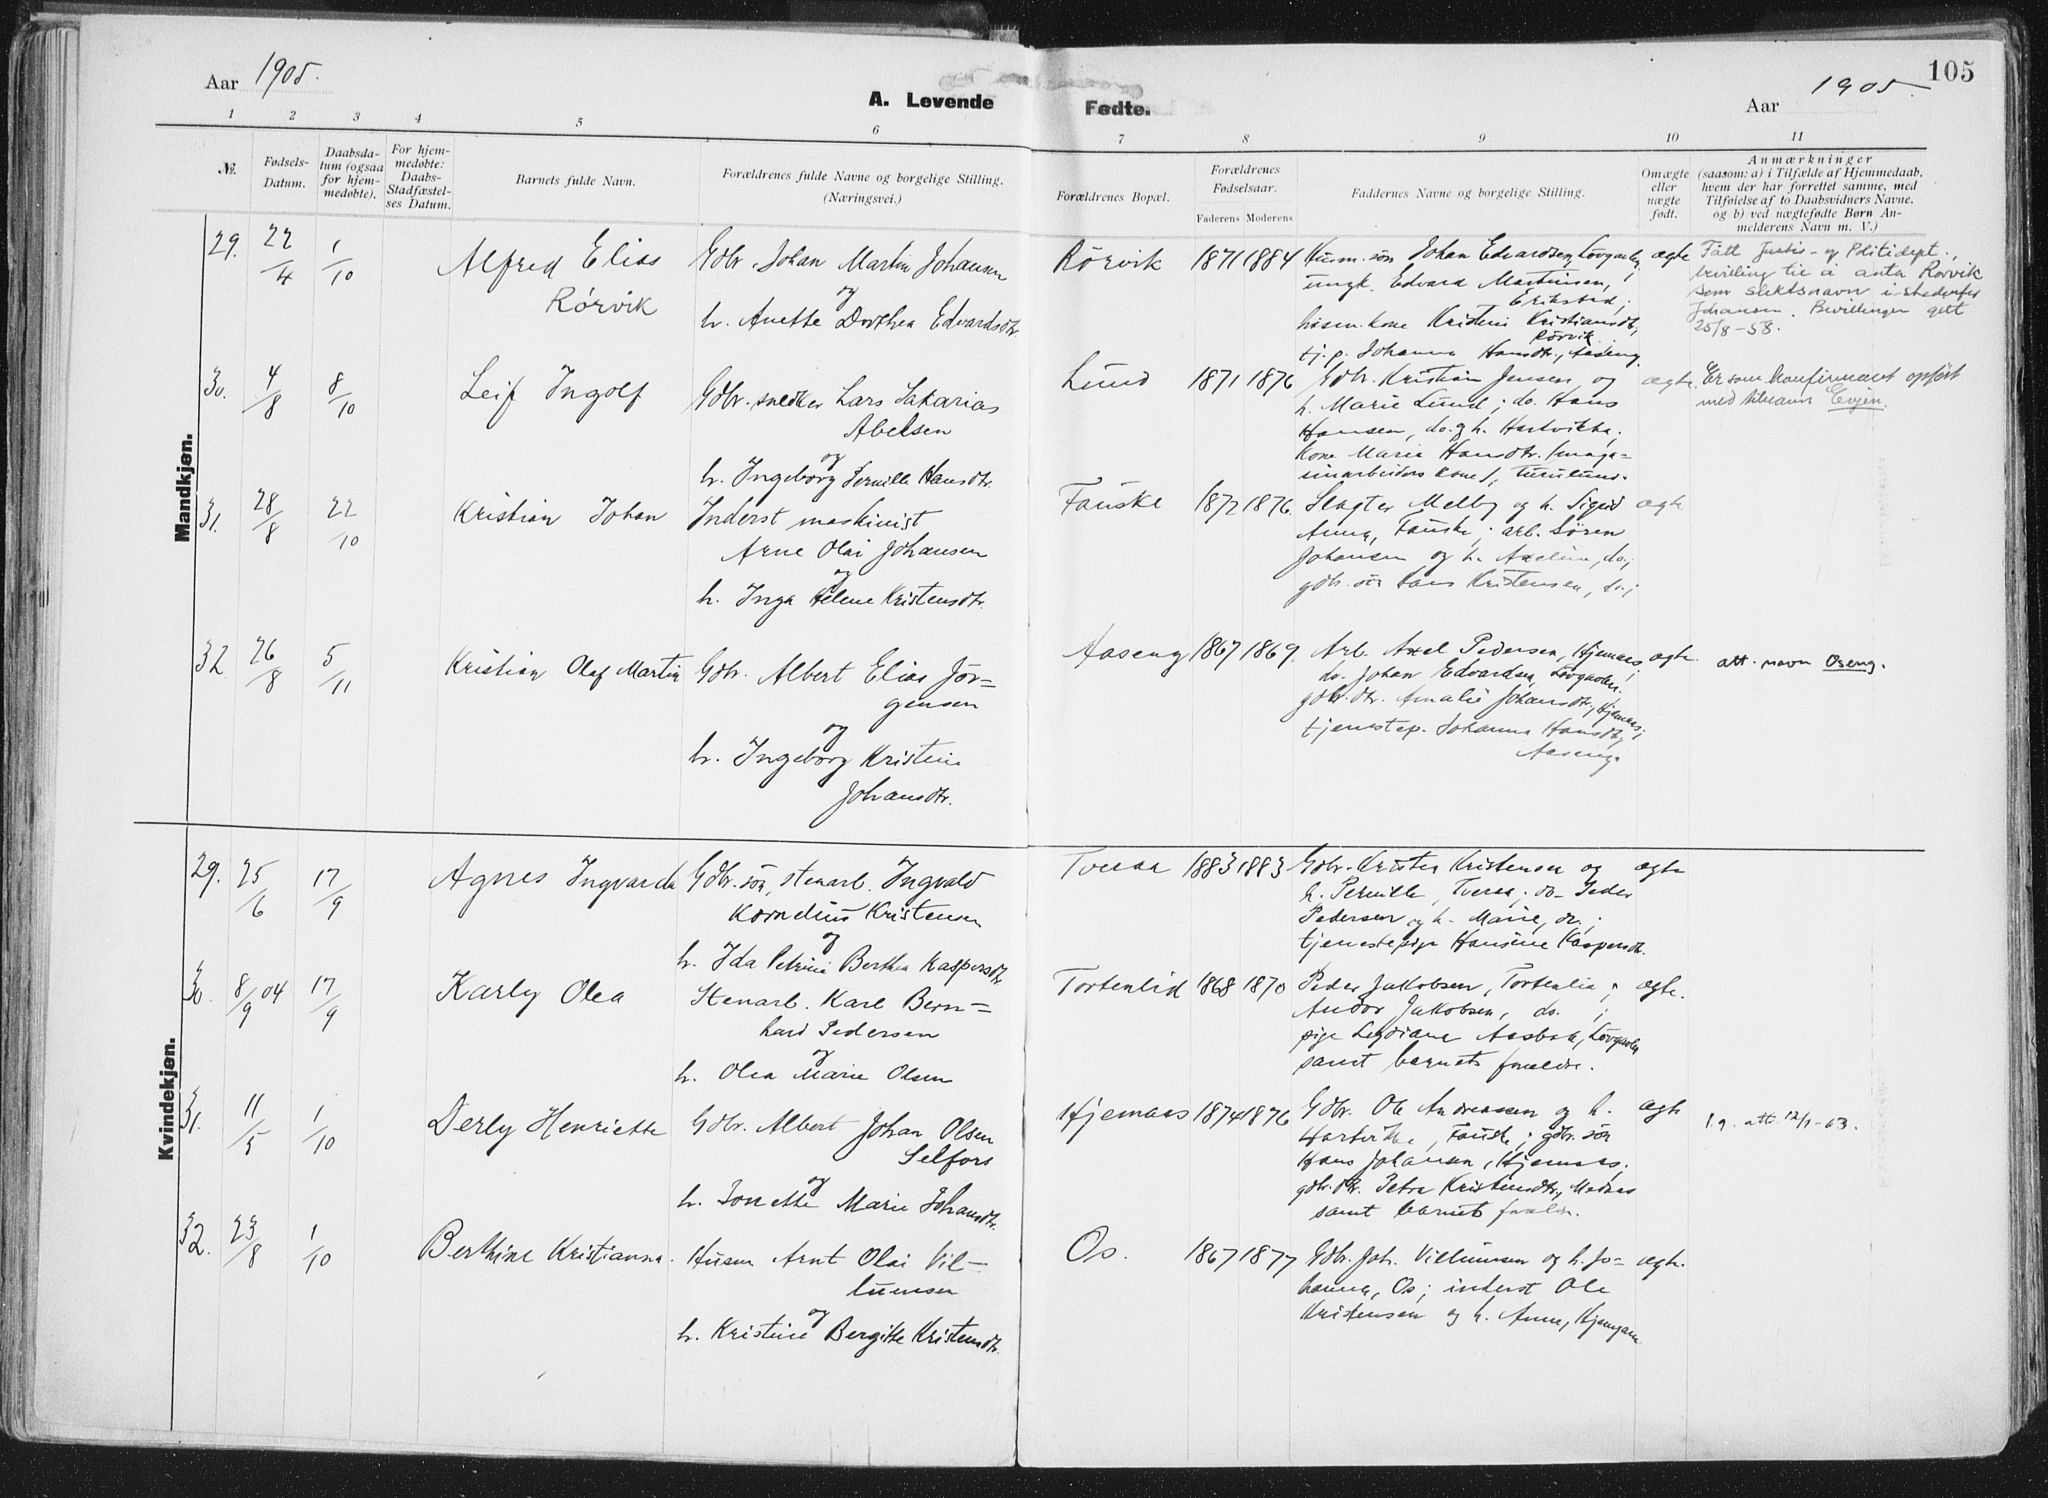 Aar 1905.
A. Levende
Fødte.
Aar 1905.
105
1 2 3 4 5 6 7 8 9 10 11
№.
Fødsels-
Datum.
Daabsda-
tum (ogsaa
for hjem-
medøbte).
For hjem-
medøbte:
Daabs-
Stadfæstel-
ses Datum.
Barnets fulde Navn.
Forældrenes fulde Navne og borgelige Stilling.
(Næringsvei.)
Forældrenes Bopæl.
Forældrenes
Fødselsaar.
Faderens Moderens
Faddernes Navne og borgelige Stilling.
Om ægte
eller
uægte
født.
Anmærkninger
(saasom: a) i Tilfælde af Hjemmedaab,
hvem der har forrettet samme, med
Tilføielse af to Daabsvidners Navne.
og b) ved uægtefødte Børn An-
melderens Navn m. V.)
Mandkjøn.
29. 22/4 1/10
Alfred Elias
Rørvik
Gdbr. Johan Martin Johansen
og
h. Anette Dorthea Edvardsdtr.
Rørvik 1871 1884
Husm. søn Johan Edvardsen, Løvgavlen,
ungk. Edvard Martinsen,
Erikstad;
husm. kone Kristine Kristiansdtr,
Rørvik
tj. p. Johanna Hansdtr., Aaseng
ægte
Fått Justis- og Politidept.
bevilling til å anta Rørvik
som slektsnavn i stedenfor
Johansen. Bevillingen gitt
25/8-58.
30. 4/8 8/10
Leif Ingolf
Gdbr. snedker Lars Sakarias
Abelsen
og
h. Ingeborg Pernille Hansdtr.
Lund 1871 1876
Gdbr. Kristian Jensen og
h. Marie Lund; do. Hans
Hansen, do. og h. Hartvikka;
kone Marie Hansdtr. (maga-
sinarbeiders kone),
ægte
Er som konfirmant opført
med tilnavn Evjen.
31. 28/8 22/10
Kristian Johan
Inderst maskinist
Arne Olai Johansen
og
h. Inga Helene Kristensdtr.
Fauske 1872 1876
Slagter Melby og h. Sigrid
Anna, Fauske; arb. Søren
Johansen og h. Axeline, do.;
gdbr. søn Hans Kristensen, do.;
ægte
32 26/8 5/11
Kristian Olaf Martin
Gdbr. Albert Elias Jør-
gensen
og
h. Ingeborg Kristine
Johansdtr.
Aaseng 1867 1869.
Arb. Axel Pedersen, Hjemaas;
do. Johan Edvardsen, Løvgavlen.
gdbr. dtr. Amalie Johansdtr., Hjemaas;
tjenestep. Johanna Hansdtr,
Aaseng.
ægte
att. navn Oseng.
Kvindekjøn.
29. 25/6 17/9
Agnes Ingvarda
Gdbr. søn, stenarb. Ingvald
Kornelius Kristensen
og
h. Ida Petrine Berthea Kaspersdtr
Tveraa 1883 1883
Gdbr. Krister Kristensen og
h. Pernille, Tveraa; do. Peder
Pedersen og h. Marie, do.;
tjenestepige Hansine Kaspersdtr.
ægte
30. 8/9 04 17/9
Karly Olea
Stenarb. Karl Bern-
hard Pedersen
og
h. Olea Marie Olsen
Tortenlid 1868 1870
Peder Jakobsen, Tortenlid;
Andor Jakobsen, do.;
pige Lydiane Aasbak, Løvgavlen
samt barnets forældre.
ægte.
31. 11/5 1/10
Derly Henriette
Gdbr. Albert Johan Olsen
Selfors
og
h. Jonette Marie Johansdtr.
Hjemaas 1874 1876
Gdbr. Ole Andreassen og h.
Hartvikke, Fauske; gdbr. søn
Hans Johansen, Hjemaas;
gdbr. dtr. Petra Kristensdtr., Medaas
samt barnets forældr.
ægte
l.g. att. 12/1-63.
32. 23/8 1/10
Berthine Kristianna.
Husm Arnt Olai Vil-
lumsen
og
h. Kristine Bergitte Kristensdtr.
Os. 1867 1877
Gdbr. Joh. Villumsen og h. Jo-
hanna, Os; inderst Ole
Kristensen og h. Anne, Hjemgam
ægte.